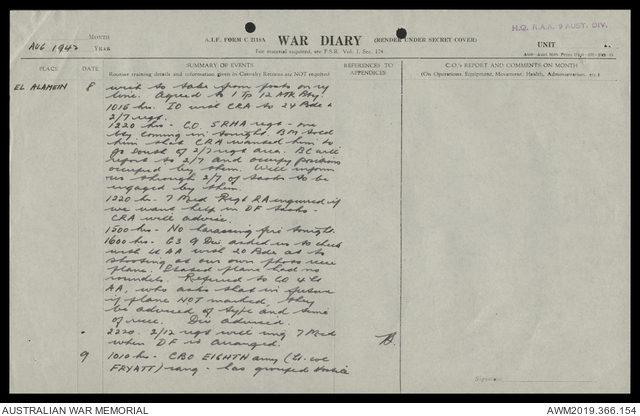 H.Q. R.A.A. 9 AUST. DIV.
A.I.F. FORM C 2118A WAR DIARY (RENDER UNDER SECRET COVER)
MONTH
AUG 1942 YEAR
For material required, see F.S.R. Vol. 1, Sec. 174
UNIT
PLACE DATE SUMMARY OF EVENTS REFERENCES TO APPENDICES C.O.'s REPORT AND COMMENTS ON MONTH
Routine training details and information given in Casualty Returns are NOT required
(On Operations, Equipment, Movement, Health, Administration, etc.)
EL ALAMEIN 8 wish to take from posts on ry
line. Agreed to 1 Tp 12 ATK Bty.
1015 hrs. IO with CRA to 24 Bde &
2/7 regt.
1220 hrs - CO. 5 RHA regt - one
bty coming in tonight. BM told
him that CRA wanted him to
go South of 2/7 regt area. BC will
report to 2/7 and occupy positions
occupied by them. Will inform
us through 2/7 of tasks to be
engaged by them.
1220 hr. 7 Med Regt RA enquired if
we want help in DF tasks -
CRA will advise.
1500 hrs - No harassing fire tonight.
1600 hrs - G3 9 Div asked us to check
with Lt AA with 20 Bde as to
shooting at our own photo recce
plane. Stated plane had no
roundels. Referred to CO 4 Lt
AA, who asks that in future
if plane NOT marked, they
be advised of type and time
of recce. Div advised.
2220. 2/12 regt will ring 7 Med
when DF is arranged. B.
9 1010 hrs - CBO EIGHTH army (Lt-col
FRYATT) rang - has grouped hostile
Signature
AUSTRALIAN WAR MEMORIAL AWM2019.366.154